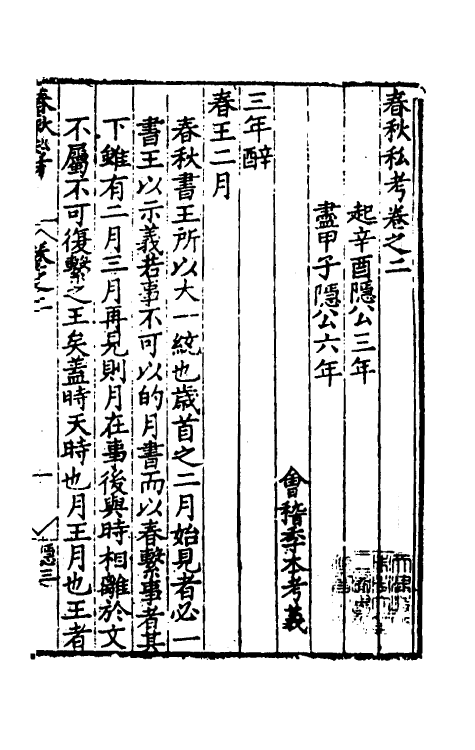 春秋私考卷之二
起辛酉隱公三年
盡甲子隱公六年
會稽季本考義
三年辭
春王二月
春秋書王所以大一統也歲首之二月始見者必一
書王以示義若事不可以的月書而以春繫事者其
下雖有二月三月再見則月在事後與時相離於文
不屬不可復繫之王矣蓋時天時也月王月也王者
春秋私考
卷之二
一
隱三